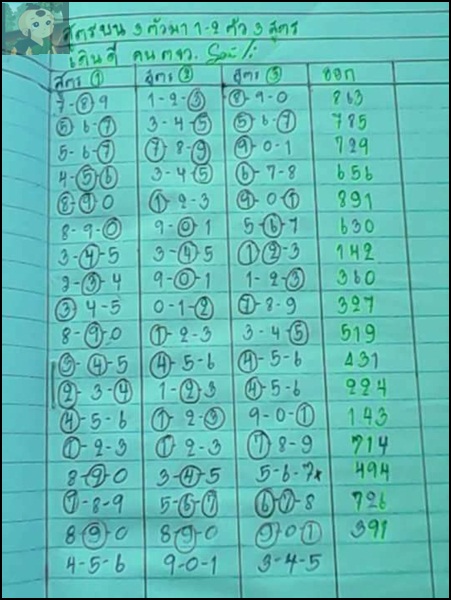 สูตรบน 3 ตัวมา 1-2 ตัว 3 สูตร
เดินดี คน ตจว.
สูตร ① สูตร ② สูตร ③ ออก
7-8-9 1-2-3 8-9-0 863
5-6-7 3-4-5 5-6-7 785
5-6-7 7-8-9 9-0-1 729
4-5-6 3-4-5 6-7-8 656
8-9-0 1-2-3 9-0-1 891
8-9-0 9-0-1 5-6-7 630
3-4-5 3-4-5 1-2-3 142
2-3-4 9-0-1 1-2-3 360
3-4-5 0-1-2 7-8-9 327
8-9-0 1-2-3 3-4-5 519
3-4-5 4-5-6 4-5-6 431
2-3-4 1-2-3 4-5-6 224
4-5-6 1-2-3 9-0-1 143
1-2-3 1-2-3 7-8-9 714
8-9-0 3-4-5 5-6-7x 494
7-8-9 5-6-7 6-7-8 726
8-9-0 8-9-0 9-0-1 391
4-5-6 9-0-1 3-4-5